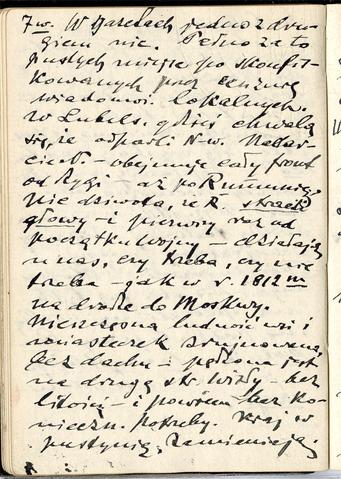 7 w. W gazetach jedno z dru-
giem nic. Pełno za to
pustych miejsc po skonfis-
kowanych przez cenzurę
wiadomości lokalnych.
W Lubels. gdzieś chwalą
się, że odparli N-w. Natar-
cie N- obejmuje cały front
od Rygi aż po Rumunię.
Nic dziwota, że R. stracili
głowy - i pierwszy raz od
początku wojny - działają
u nas, czy trzeba, czy nie
trzeba - jak w r. 1812 m
na drodze do Moskwy.
Nieszczęsna ludność wsi i
miasteczek zrujnowana,
bez dachu - pędzona jest
na drugą str. Wisły - bez
litości - i powiem bez ko-
nieczn. potrzeby. Kraj w
pustynię, zamieniają.